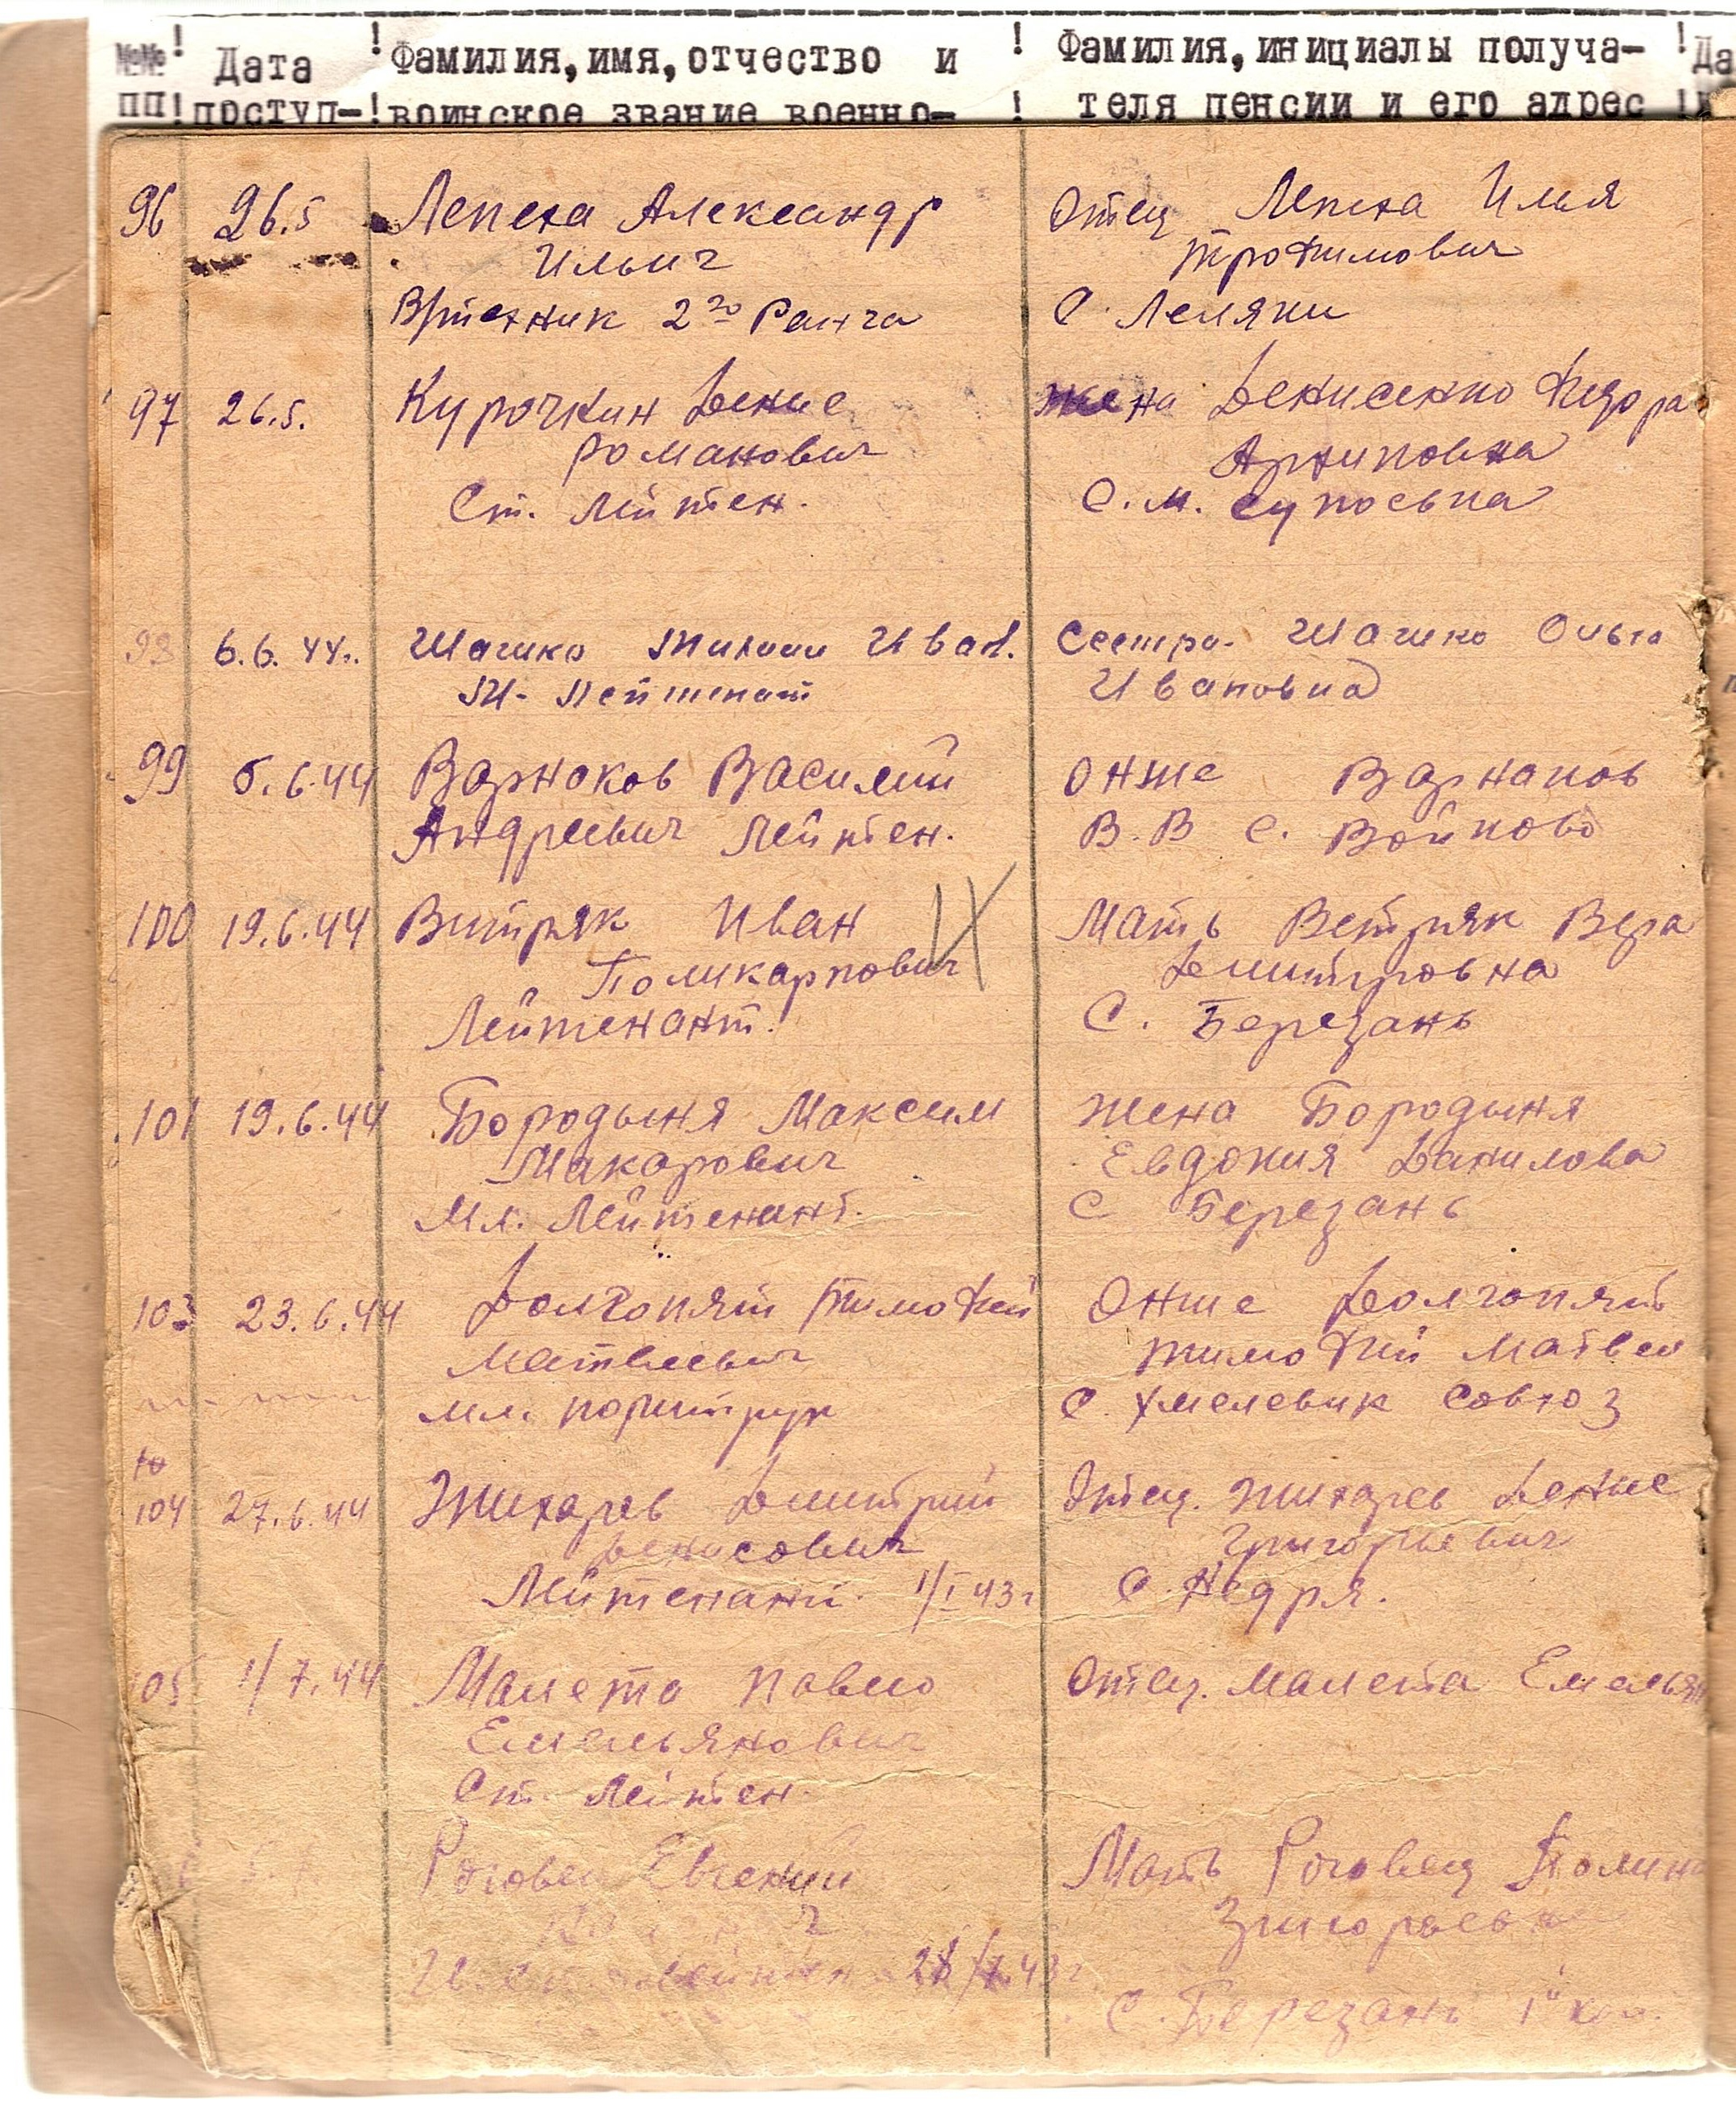 №№ ! Дата ! Фамилия, имя, отчество и ! Фамилия, инициалы получа- ! Да
ПП ! поступ- ! воинское звание военно- ! теля пенсии и его адрес !
96 26.5 Лепеха Александр Отец Лепеха Илья
Ильич Трофимович
В/техник 2го Ранга С. Леляки
97 26.5. Курочкин Денис жена Денисенко Федора
Романович Архиповна
Ст. Лейтен. С. М. Супоевка
98 6.6.44г. Иван. Сестра Ольга
Мл. Лейтенант Ивановна
99 5.6.44 Варнаков Василий Онже Варнаков
Андреевич Лейтен. В.В С. Войково
100 19.6.44 Витряк Иван Мать Ветряк Вера
Поликарпович Дмитровна
Лейтенант. С. Березань
101 19.6.44 Бородыня Максим жена Бородыня
Макарович Евдокия Данилова
Мл. Лейтенант. С Березань
103 23.6.44 Долгопят Тимофей Онже Долгопят
Матвеевич Тимофей Матвеев
мл. политрук С. Хмелевик
104 27.6.44 Жихарев Дмитрий Отец. Жихарев Денис
Денисович Григорьевич
Лейтенант. 1/I 43г С. Недря.
105 1/7.44 Малета Павло Отец. Малета Емельян
Емельянович
Ст. Лейтен.
Роговец Евгений Мать Роговец Полина
43г
С. Березань